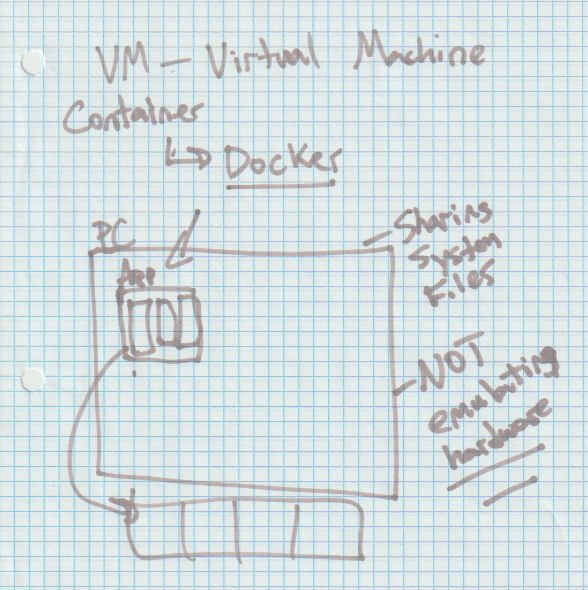 VM – Virtual Machine
Container
↳ Docker
PC
App
– Sharing
System
Files
– NOT
emulating
hardware